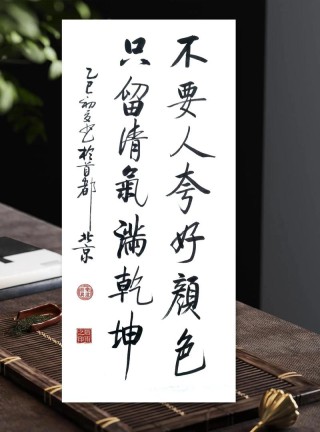 不要人夸好顏色
只留清氣滿乾坤
乙巳初夏書於首都北京